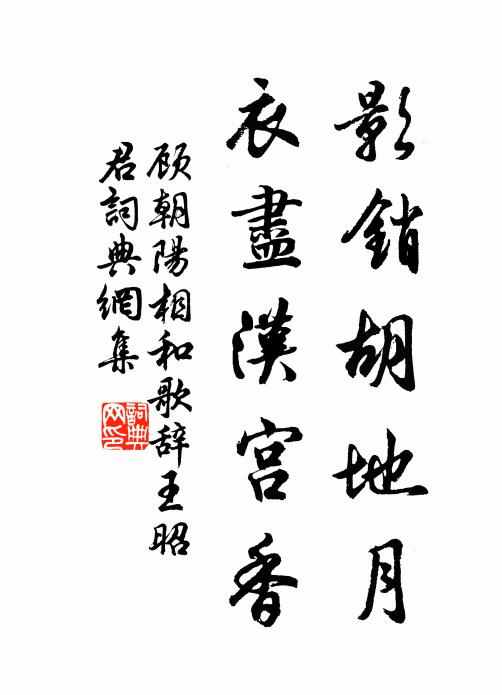 影銷胡地月
衣盡漢宮香
顾朝陽相和歌辞王昭
君詞典網集
詞典网印